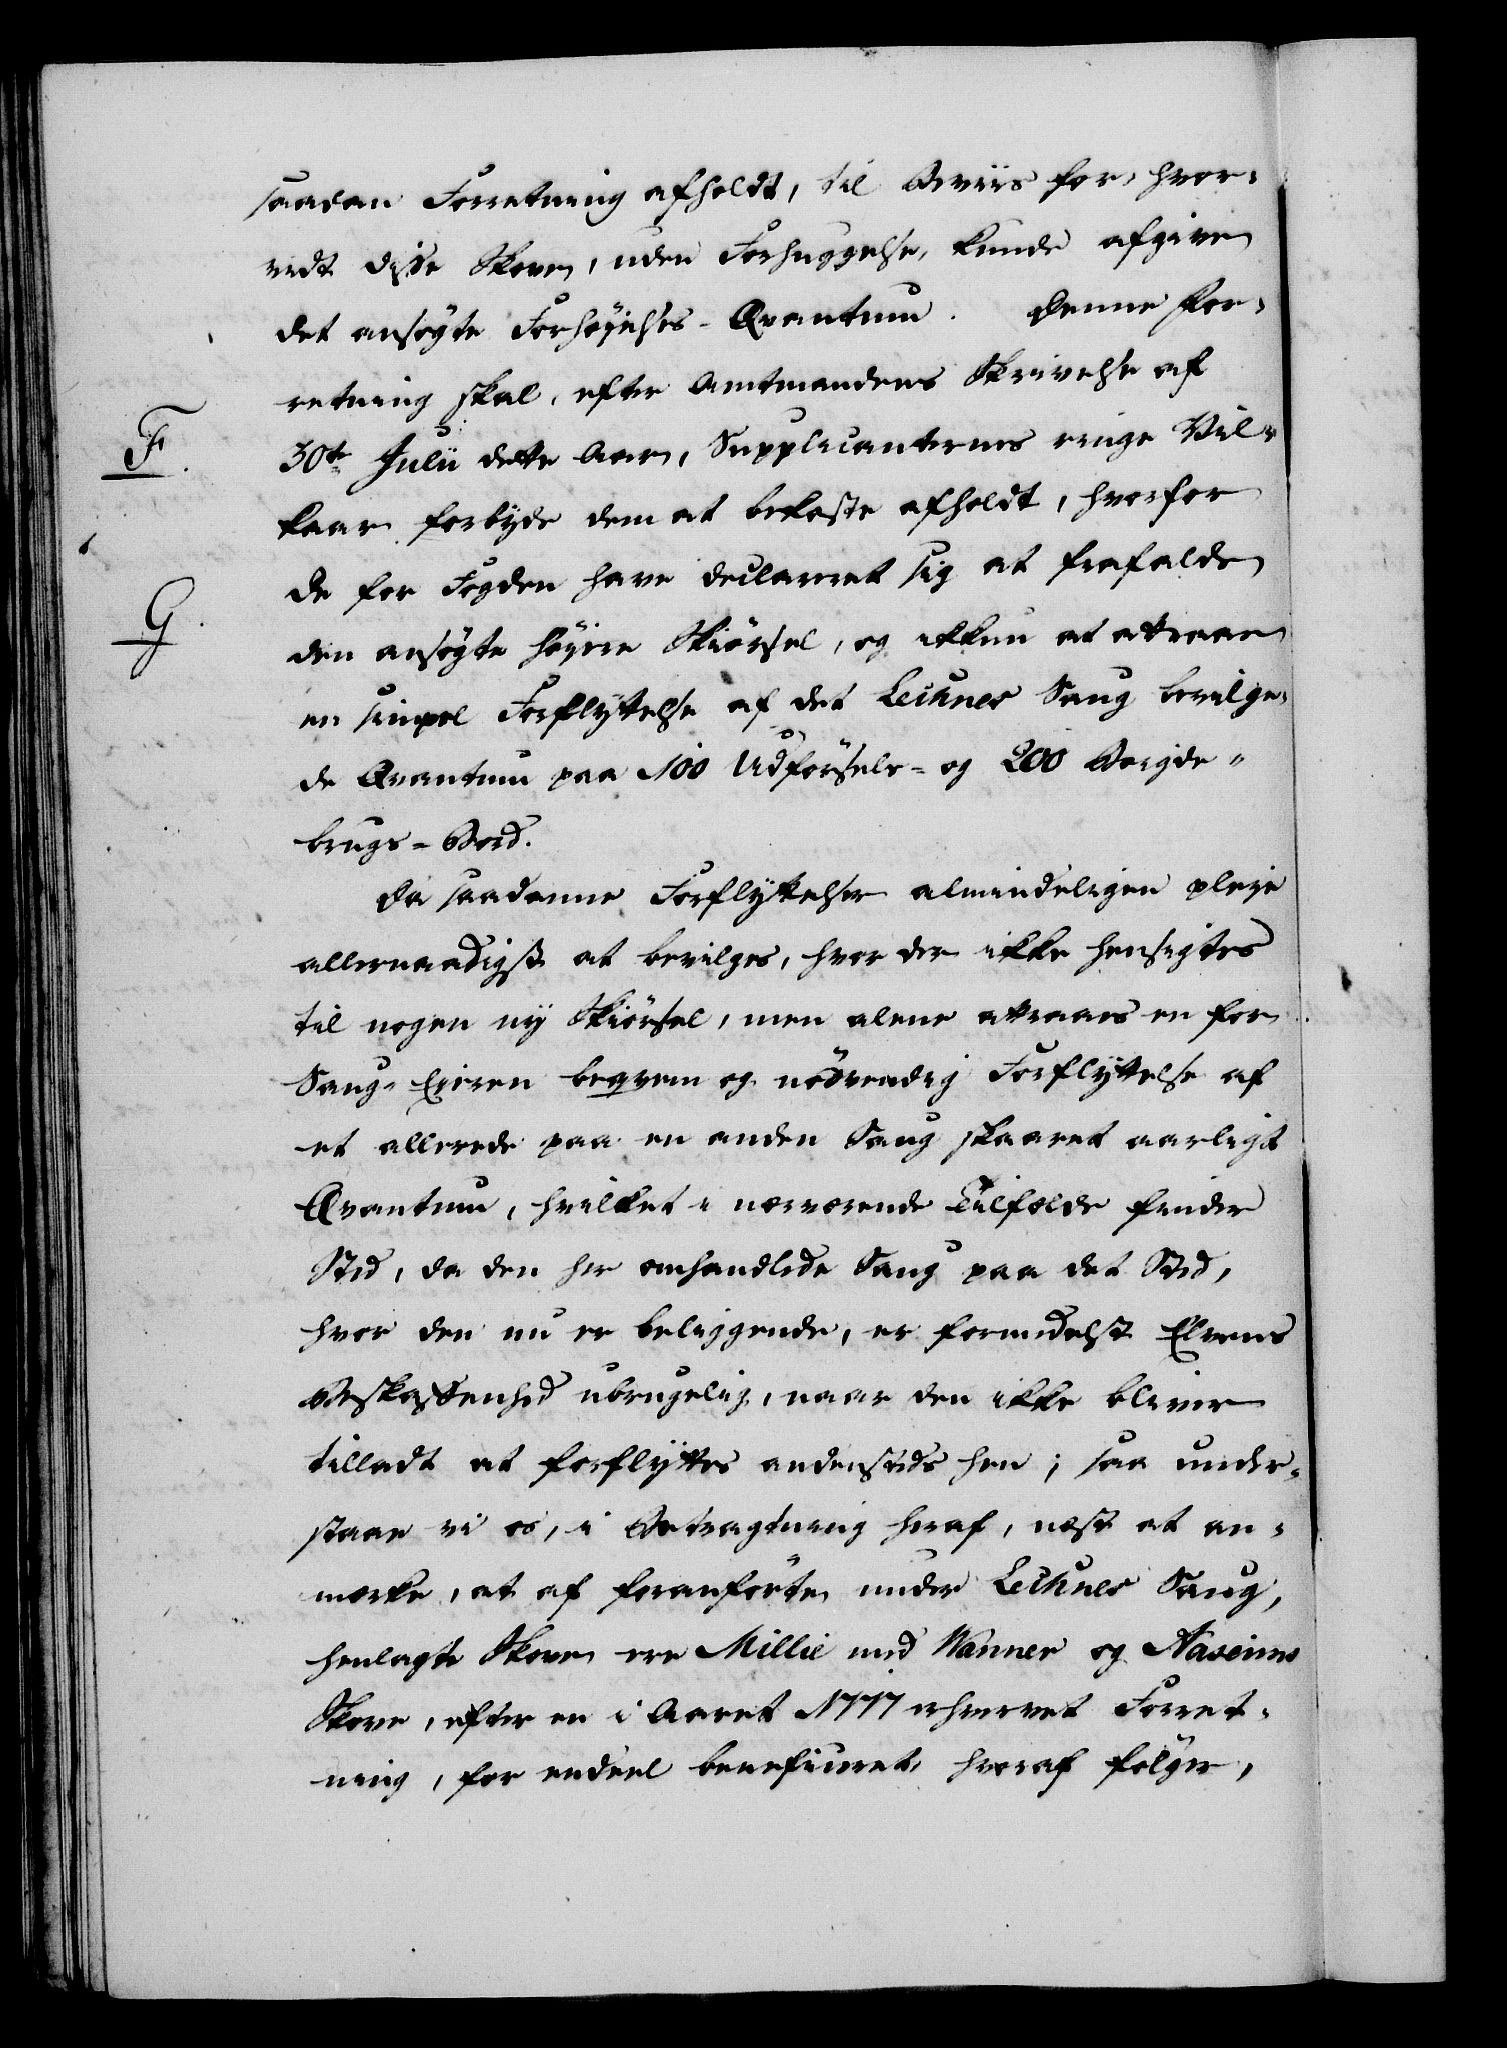 saadan Forretning afholdt, til Beviis for, hvor-
vidt disse Skove, uden Forhuggelse, kunde afgive
det ansøgte Forhøyelses-Qvantum. Denne For-
retning skal, efter Amtmandens Skrivelse af
F.
30te Julii dette Aar, Supplicanternes ringe Vil-
kaar forbyde dem at bekoste afholdt, hvorfor
G.
de for Fogden have declareret sig at frafalde
den ansøgte høyere Skiørsel, og ikkun at attraae
en simpel Forflyttelse af det Leihnes Saug bevilge-
de Qvantum paa 100 Udførsels- og 200 Bøigde-
brugs-Bord.
Da saadanne Forflyttelser almindeligen pleje
allernaadigst at bevilges, hvor der ikke hensigtes
til nogen ny Skiørsel, men alene attraaes en for
Saug-Eieren beqvem og nødvendig Forflyttelse af
et allerede paa en anden Saug skaaret aarligt
Qvantum, hvilket i nærværende Tilfælde finder
Sted, da den her omhandlede Saug paa det Sted,
hvor den nu er beliggende, er formedelst Elvens
Beskaffenhed ubrugelig, naar den ikke bliver
tilladt at forflyttes andensteds hen; saa under-
staae vi os, i Betragtning heraf, næst at an-
mærke, at af foranførte under Leihnes Saug,
henlagte Skove ere Millie med Wanner og Aaseims
Skove, efter en i Aaret 1777 erhvervet Forret-
ning, for endeel beneficeret hvoraf følger,